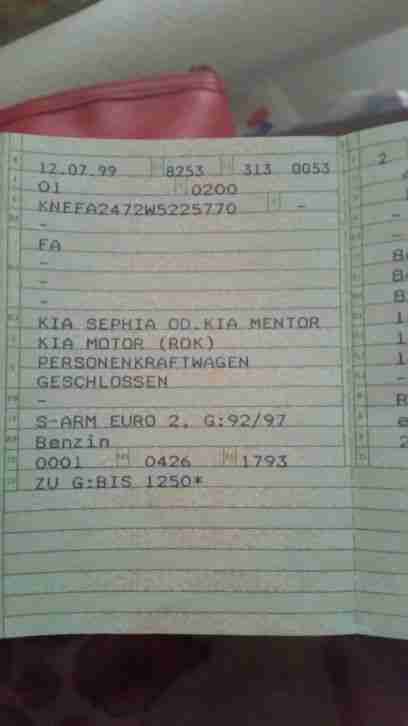 12.07.99 8253 313 0053
01 0200
KNEFA2472W5225770 -
-
FA
-
-
-
KIA SEPHIA OD.KIA MENTOR
KIA MOTOR (ROK)
PERSONENKRAFTWAGEN
GESCHLOSSEN
-
S-ARM EURO 2, G:92/97
Benzin
0001 0426 1793
ZU G:BIS 1250*
2
-
-
B
B
1
1
1
-
R
e
2